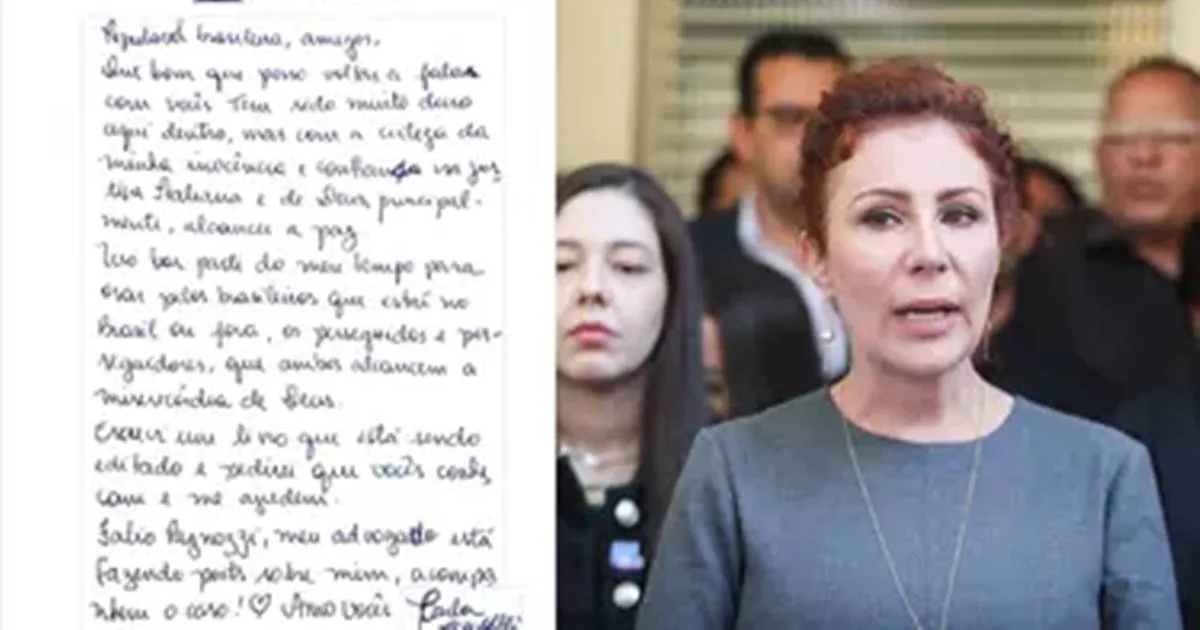 Populaçã brasileira, amigos.
Que bom que posso voltar a falar
com vocês Tem sido muito duro
aqui dentro, mas com a certeza da
minha inocência e confiança na jus
tiça Italiana e de Deus principal-
mente, alcancei a paz
Tiro boa parte do meu tempo para
orar pelos brasileiros que estã no
Brasil ou fora, os perseguidos e per-
seguidores, que ambos alcancem a
misericórdia de Deus.
Escrevi um livro que está sendo
editado e pedirei que vocês conhe
çam e me ajudem.
Fabio Pagnozzi, meu advogado está
fazendo posts sobre mim, acompa
nhem o caso! ♡ Amo vocês